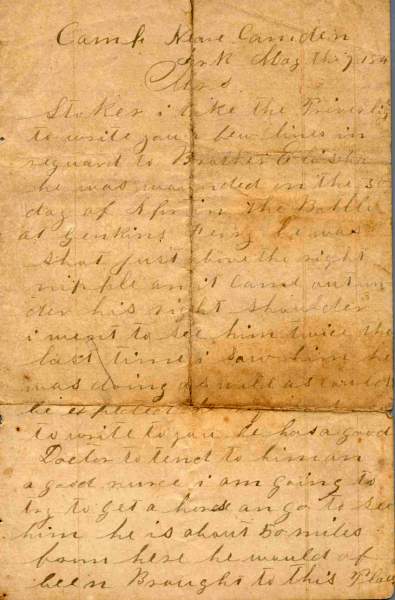 Camp Neare Camden
Ark May the 7 1864
Mrs
Stoker i take the Priverlig
to write you a few lines in
reguard to Brother Elisha
he was wounded on the 30
day of Apr in the Battle
at Jenkins Ferry he was
shot just above the right
nipple an it came out un
der his right shoulder
i went to see him twice the
last time i saw him he
was doing as well as could
be expected
to write to you he has a good
Doctor to tend to him an
a good nurce i am going to
try to get a horse an go to see
him he is about 50 miles
from here he would of
been Brought to this Place